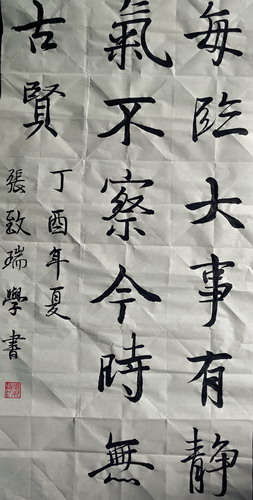 每临大事有静
氣不察今時無
古賢
丁酉年夏
張致瑞學書